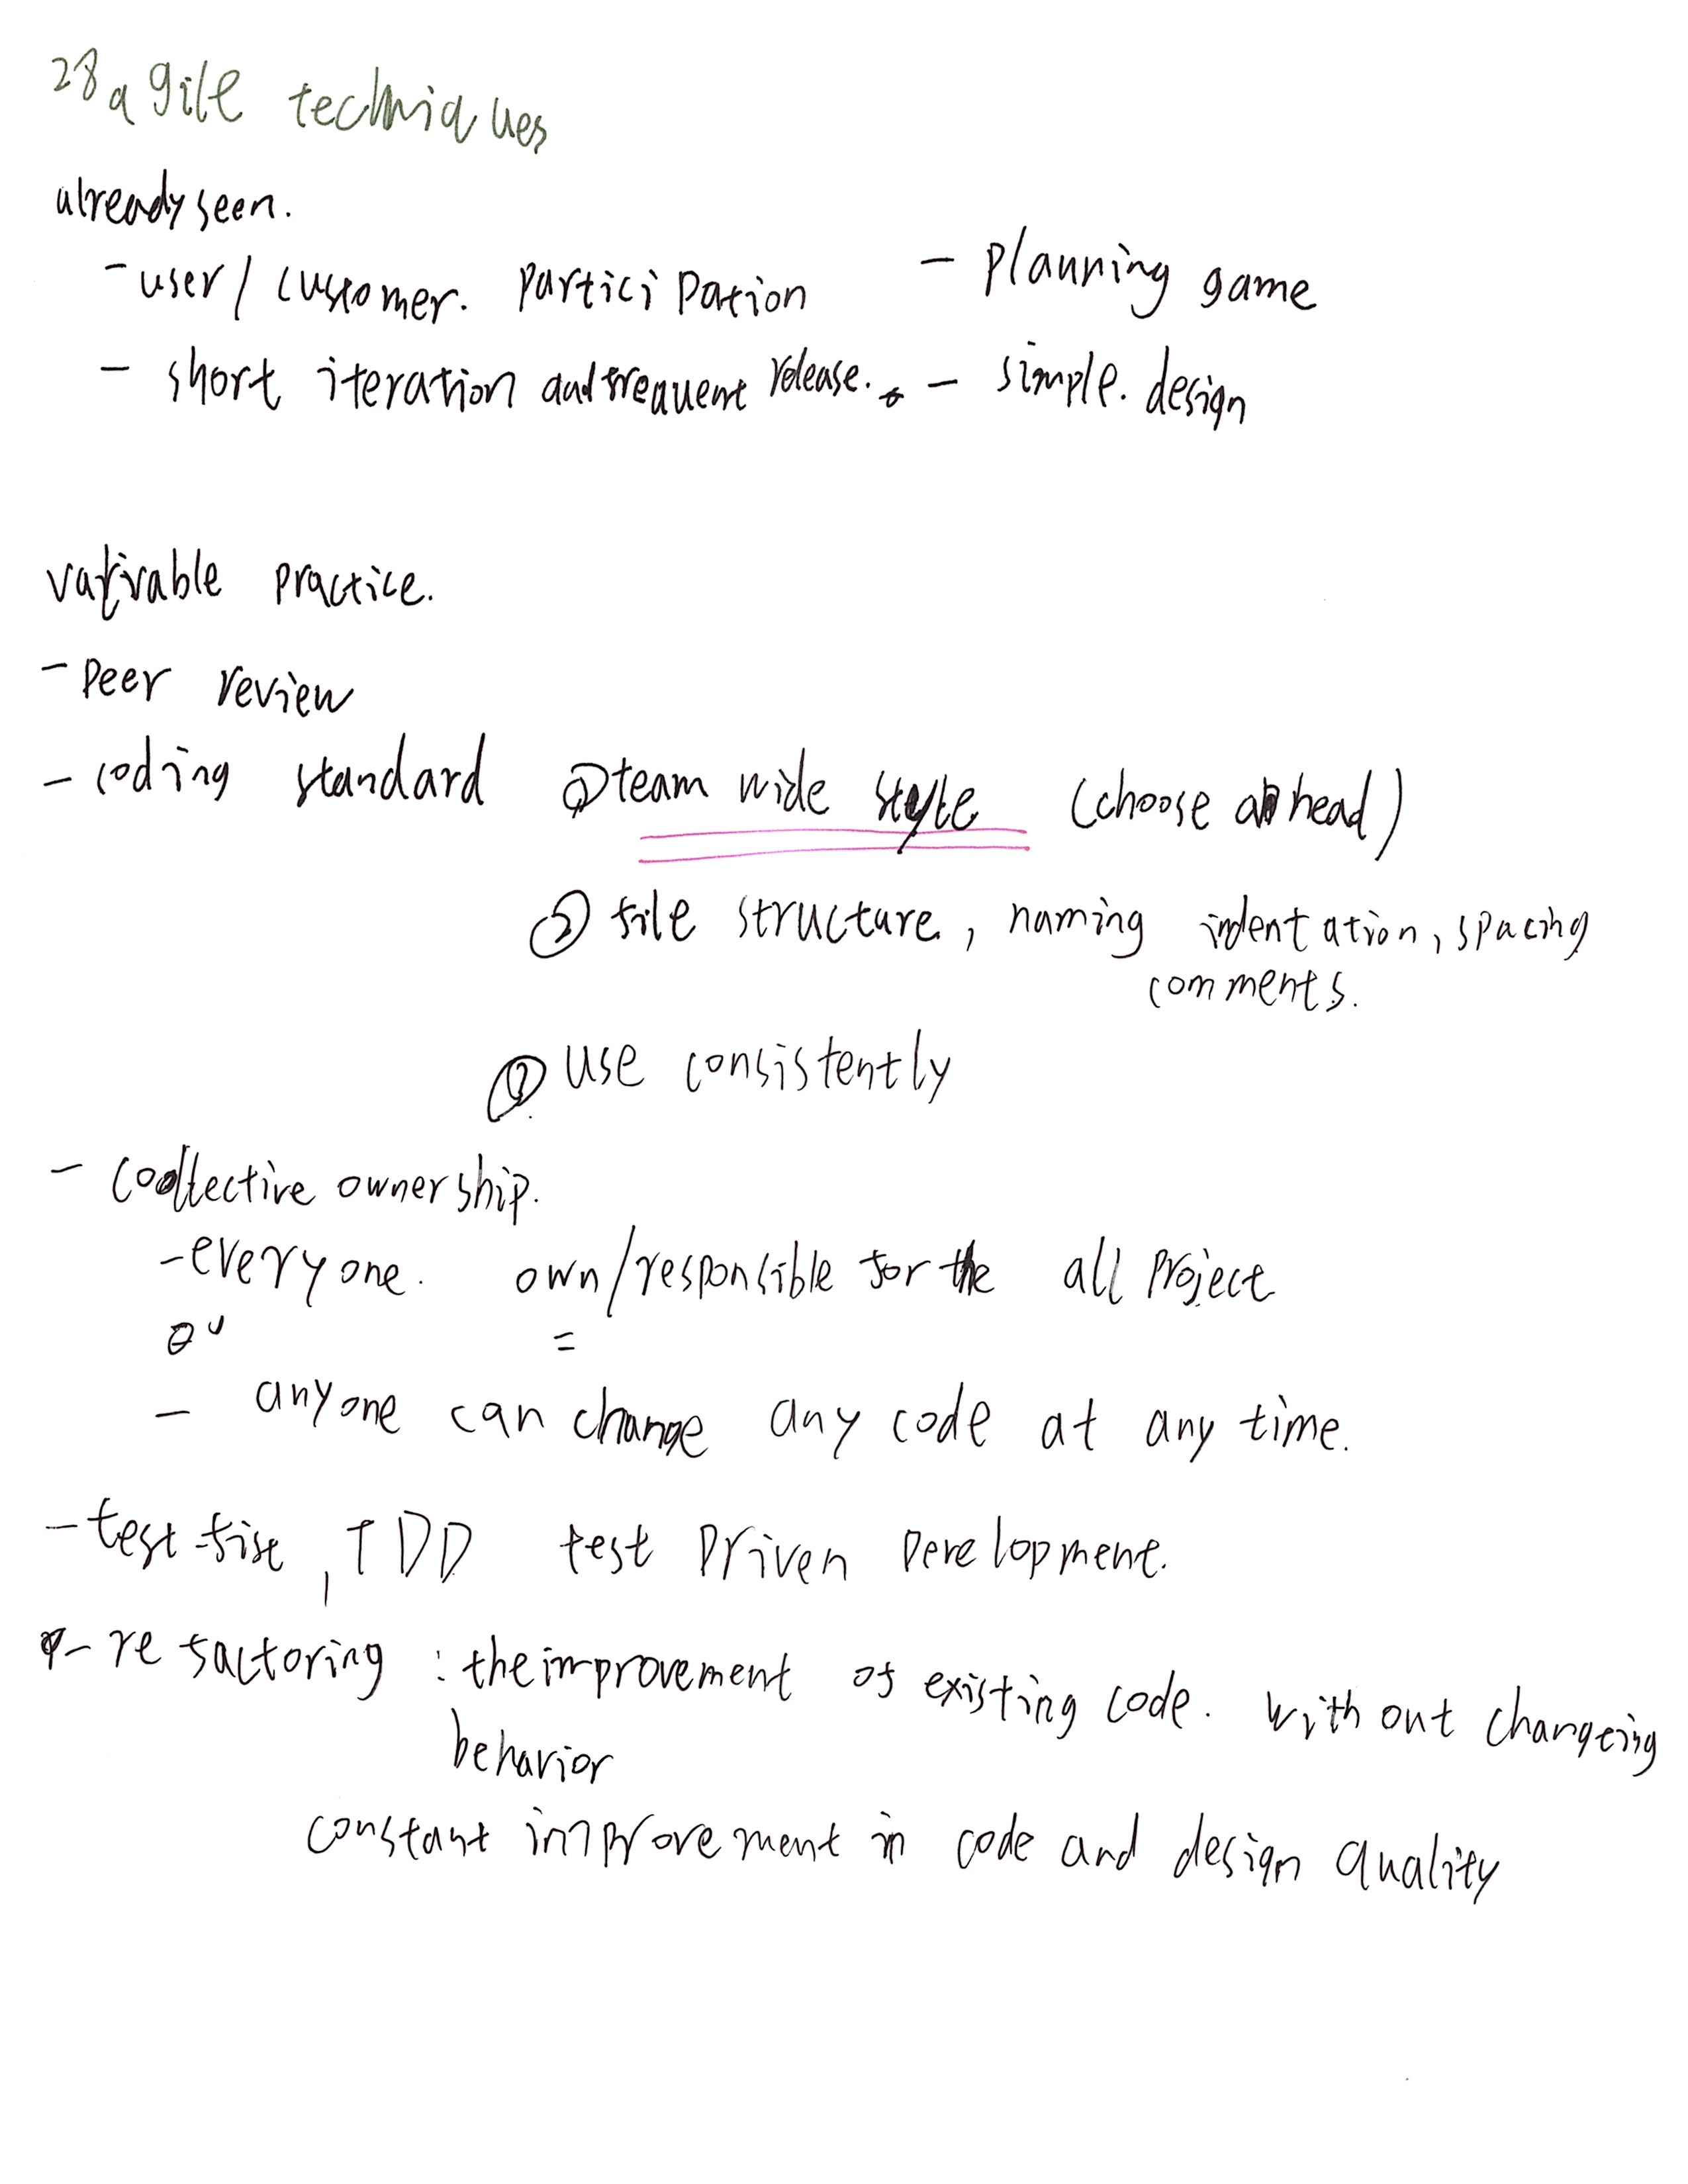 28 agile techniques
already seen.
- user/customer. participation - planning game
- short iteration and frequent release. - simple. design
practice.
- peer review
- coding standard ① team wide style (choose ahead)
② file structure, naming indentation, spacing
comments.
use consistently
- collective ownership.
- everyone. own/responsible for the all project
=
- anyone can change any code at any time.
- test-fist, TDD test Driven Development.
- refactoring : the improvement of existing code. without changeing
behavior
constant improvement in code and design quality